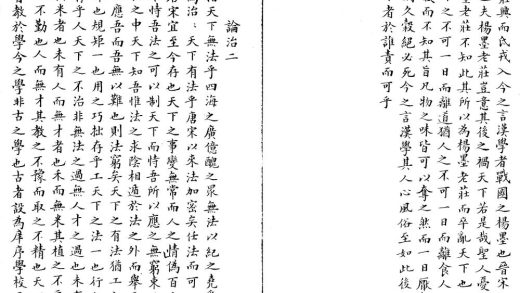 莊興而氐戎入今之言漢學者戰國之楊墨也晉宋
也夫楊墨老莊豈意其後之禍天下若是哉聖人憂
墨老莊不知此其所以為楊墨老莊而卒亂天下也
之不可一日而離道猶人之不可一日而離食人
而不知其旨凡物之味皆可以奪之然而一日厭
久穀絕必死今之言漢學其人心風俗至如此後
者於誰責而可乎
論治二
天下無法乎四海之廣億醜之眾無法以紀之堯
為治天下有法乎唐宋以來法加密矣任法而可
宋宜至今存也天下之事變無常而人之情偽百
恃吾法之可以制天下而恃吾所以應之無窮東
之中天下知吾惟法之求陰相遁於法之外而舉
應吾而吾無以難也則法窮矣天下之有法猶工
也規矩一也用之巧拙存乎工天下之法一也行
乎人天下之不治非無法之過無人才之過也未
來者也未有人而無才者也未而無來其植之不
不勤也人而無才其教之不豫而取之不精也天
教於學今之學非古之學也古者設為庠序學校